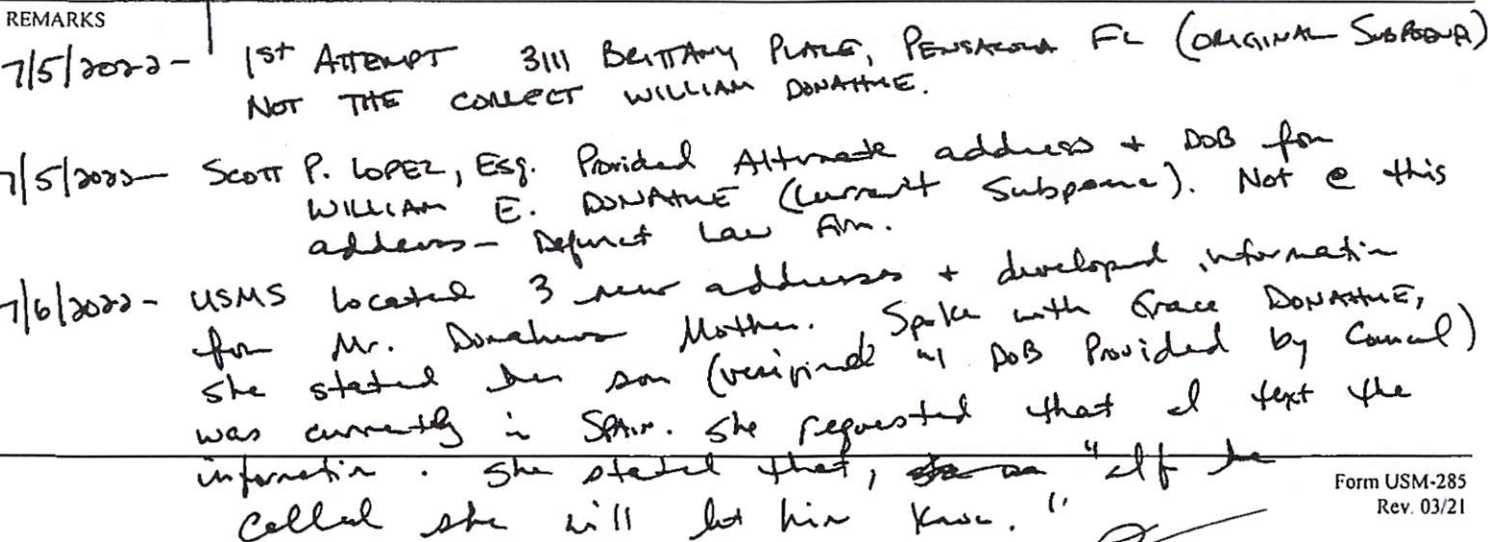 REMARKS
7/5/2022- 1st ATTEMPT 3111 BRITTANY PLACE, PENSACOLA FL (ORIGINAL SUBPOENA)
NOT THE CORRECT WILLIAM DONAHUE.
7/5/2022- SCOTT P. LOPEZ, Esq. Provided Alternate address + DOB for
WILLIAM E. DONAHUE (current Subpoena). Not @ this
address- Defunct Law Firm.
7/6/2022- USMS located 3 new addresses + developed information
for Mr. Donahues Mother. Spoke with Grace DONAHUE,
She stated her son (verified w/ DOB Provided by Council)
was currently in SPAIN. She requested that I text the
information. She stated that, "If he
called she will let him know."
Form USM-285
Rev. 03/21